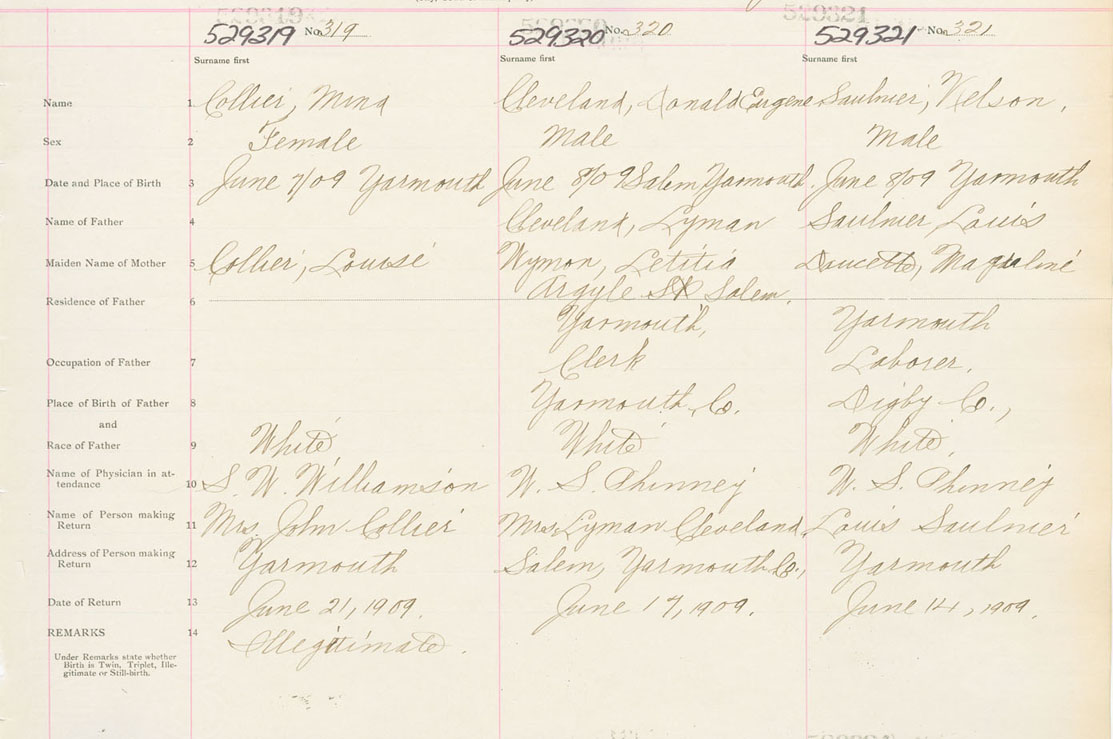 529319 529320 529321
529319 No. 319 529320 No. 320 529321 No. 321
Surname first Surname first Surname first
Name 1 Collier, Mina Cleveland, Donald Eugene Saulnier, Nelson.
Sex 2 Female Male Male
Date and Place of Birth 3 June 7/09 Yarmouth June 8/09 Salem Yarmouth. June 8/09 Yarmouth
Name of Father 4 Cleveland, Lyman Saulnier, Louis
Maiden Name of Mother 5 Collier, Louise Wyman, Letitia Doucette, Magdaline
Argyle St Salem.
Residence of Father 6
Yarmouth, Yarmouth
Occupation of Father 7 Clerk Laborer.
Place of Birth of Father 8 Yarmouth Co. Digby Co.,
and
Race of Father 9 White White White.
Name of Physician in at-
tendance 10 S. W. Williamson W. S. Phinney W. S. Phinney
Name of Person making
Return 11 Mrs. John Collier Mrs. Lyman Cleveland. Louis Saulnier
Address of Person making
Return 12 Yarmouth Salem, Yarmouth Co., Yarmouth
Date of Return 13 June 21, 1909. June 17, 1909. June 14, 1909.
REMARKS 14 Illegitimate.
Under Remarks state whether
Birth is Twin, Triplet, Ille-
gitimate or Still-birth.